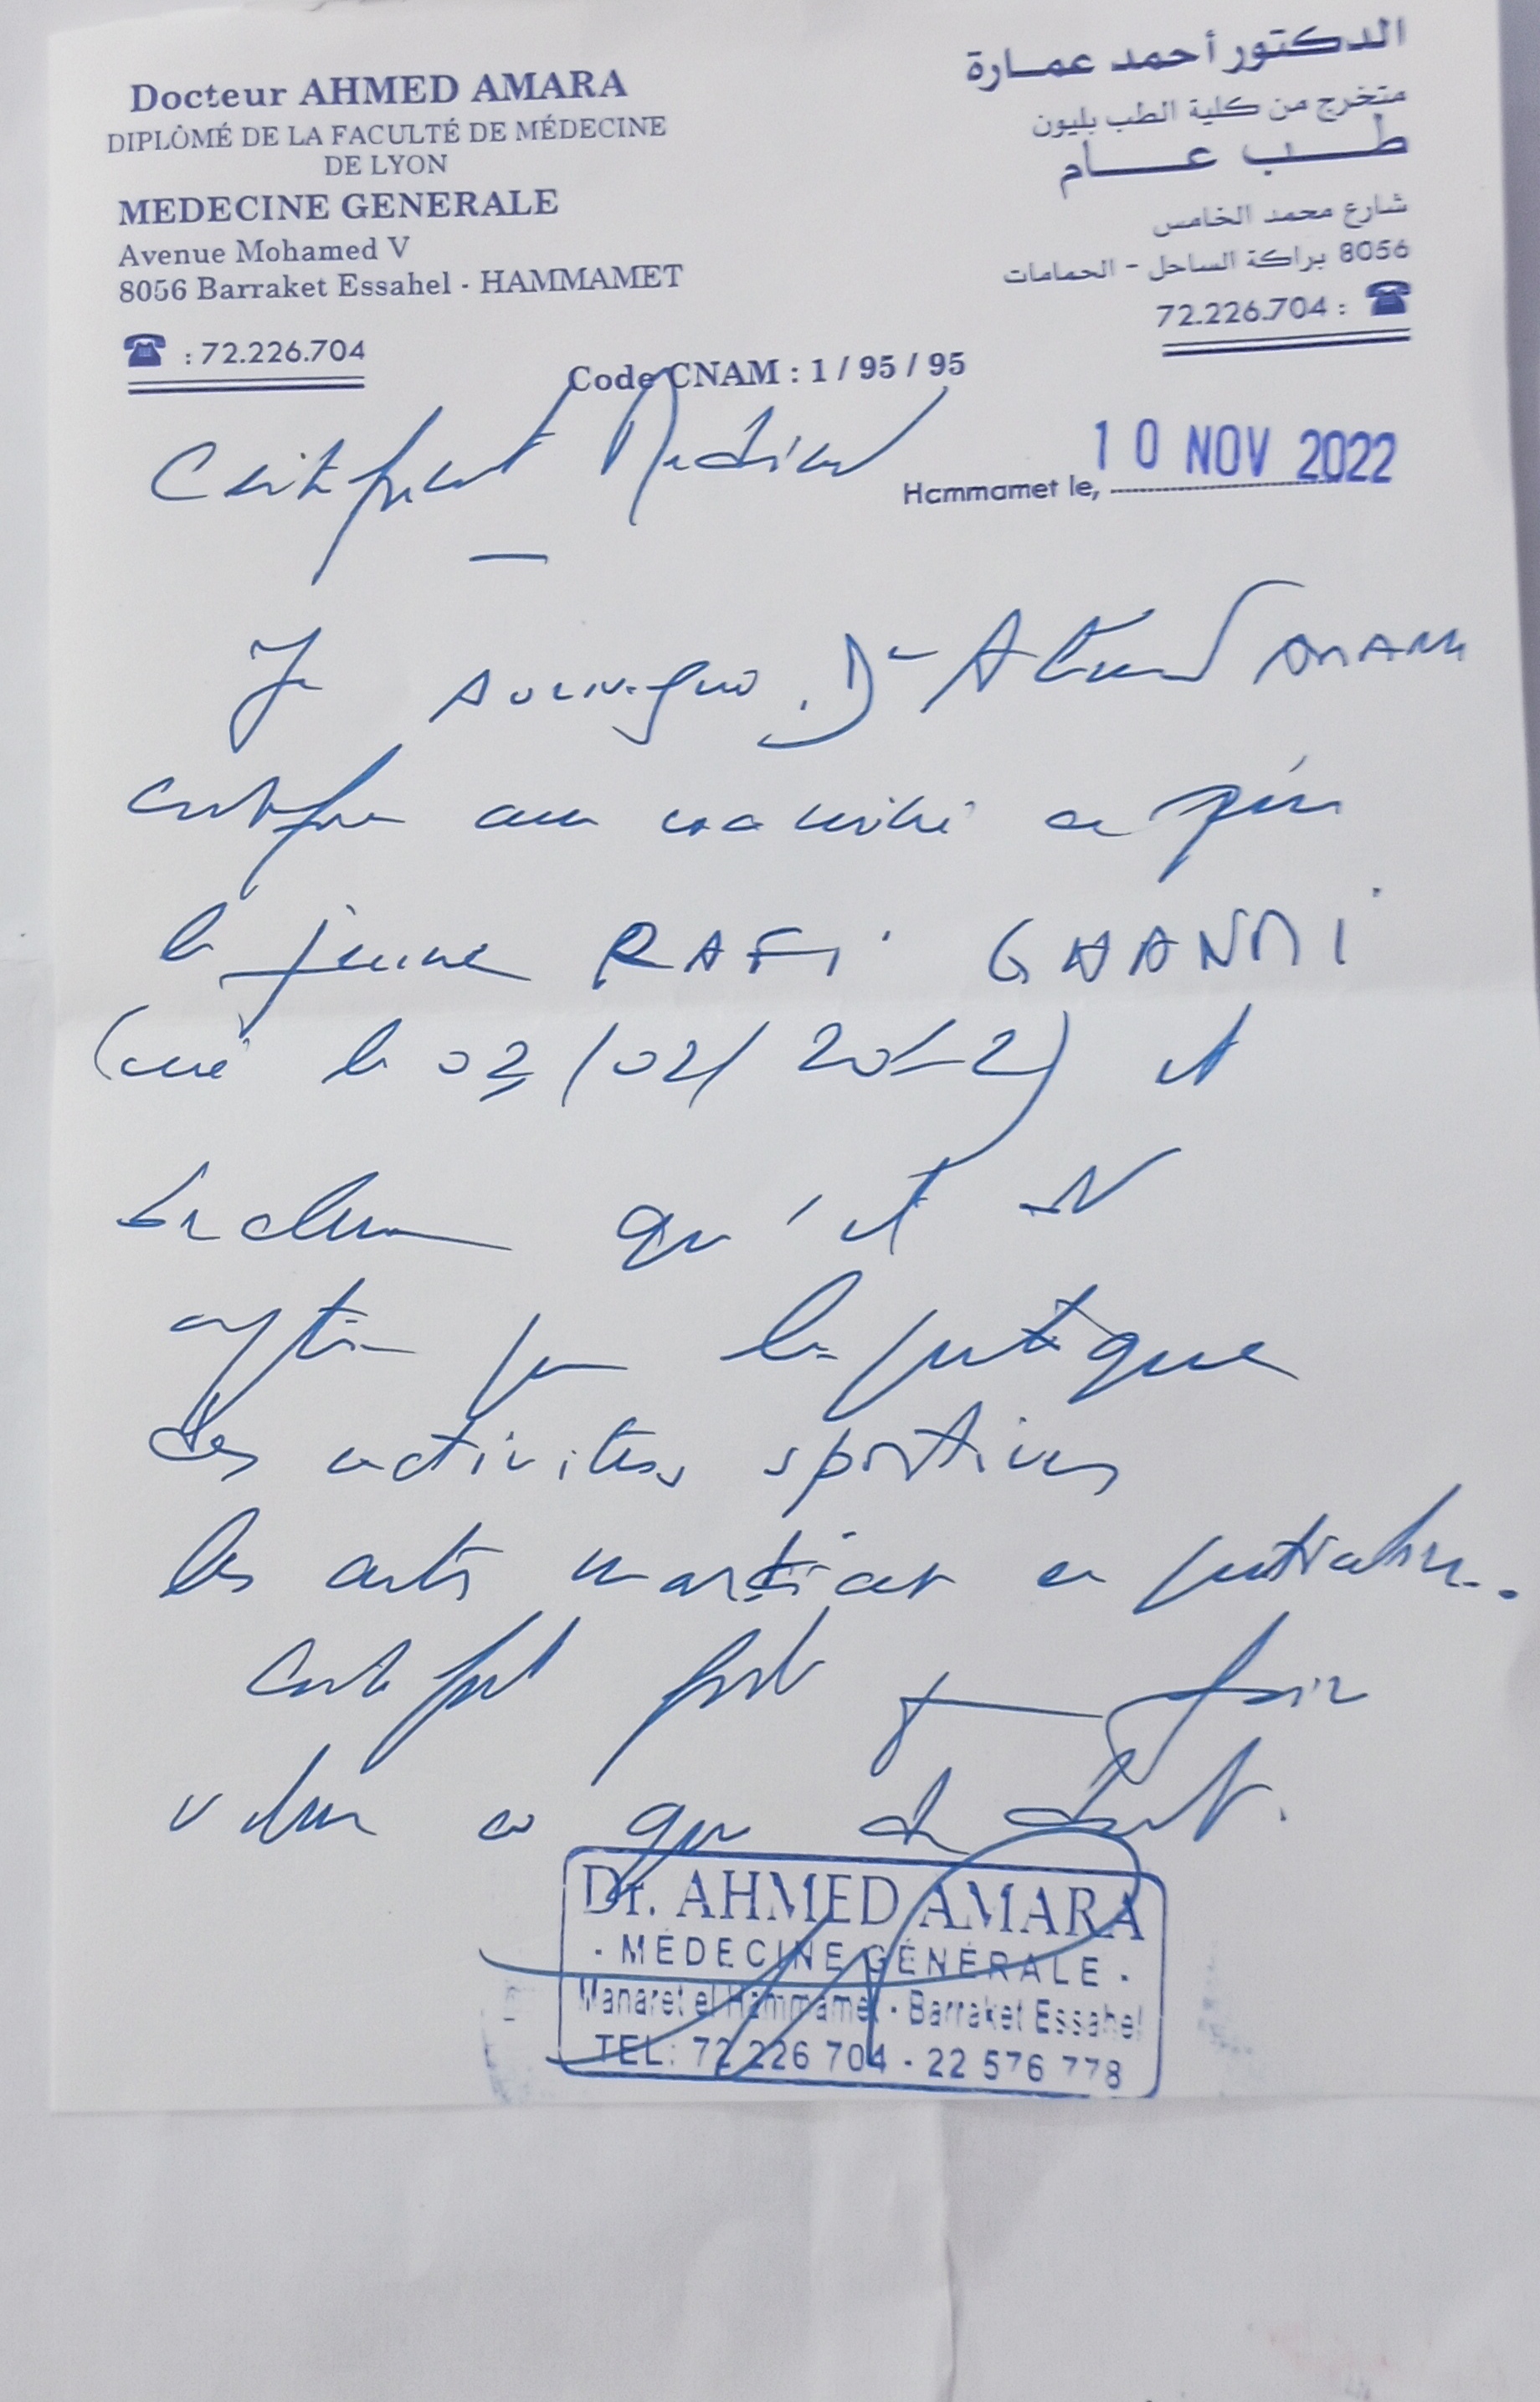 Docteur AHMED AMARA
DIPLÔMÉ DE LA FACULTÉ DE MÉDECINE
DE LYON
MEDECINE GENERALE
Avenue Mohamed V
8056 Barraket Essahel - HAMMAMET
☎ : 72.226.704
الدكتور أحمد عمارة
متخرج من كلية الطب بليون
طب عام
شارع محمد الخامس
8056 براكة الساحل - الحمامات
72.226.704 : ☎
Code CNAM : 1 / 95 / 95
Certificat Medical
Hammamet le, 10 NOV 2022
Je soussigné Dr Ahmed AMARA
certifie avoir examiné ce jour
le jeune RAFI GHANMI
(né le 02/02/2012) et
qu'il est
apte pour la pratique
des activites sportives
les arts martiaux en particulier.
Certificat pour faire
valoir ce que de droit.
Dr. AHMED AMARA
- MÉDECINE GÉNÉRALE -
Manaret el Hammamet - Barraket Essahel
TEL: 72 226 704 - 22 576 778